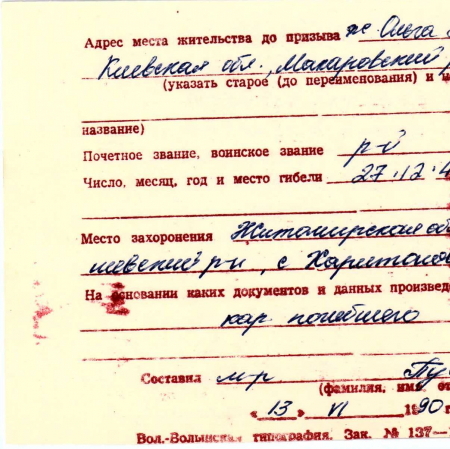 Адрес места жительства до призыва же Ольга
Киевская обл., Макаровский
(указать старое (до переименования) и
название)
Почетное звание, воинское звание р-й
Число, месяц, год и место гибели 27.12.4
Место захоронения Житомирская об
шевский р-н, с Харитонов
На основании каких документов и данных произведе
кар. погибшего
Составил м-р Ту
(фамилия, имя, от
«13» VI 1990 г
Вол.-Волынская типография. Зак. № 137—